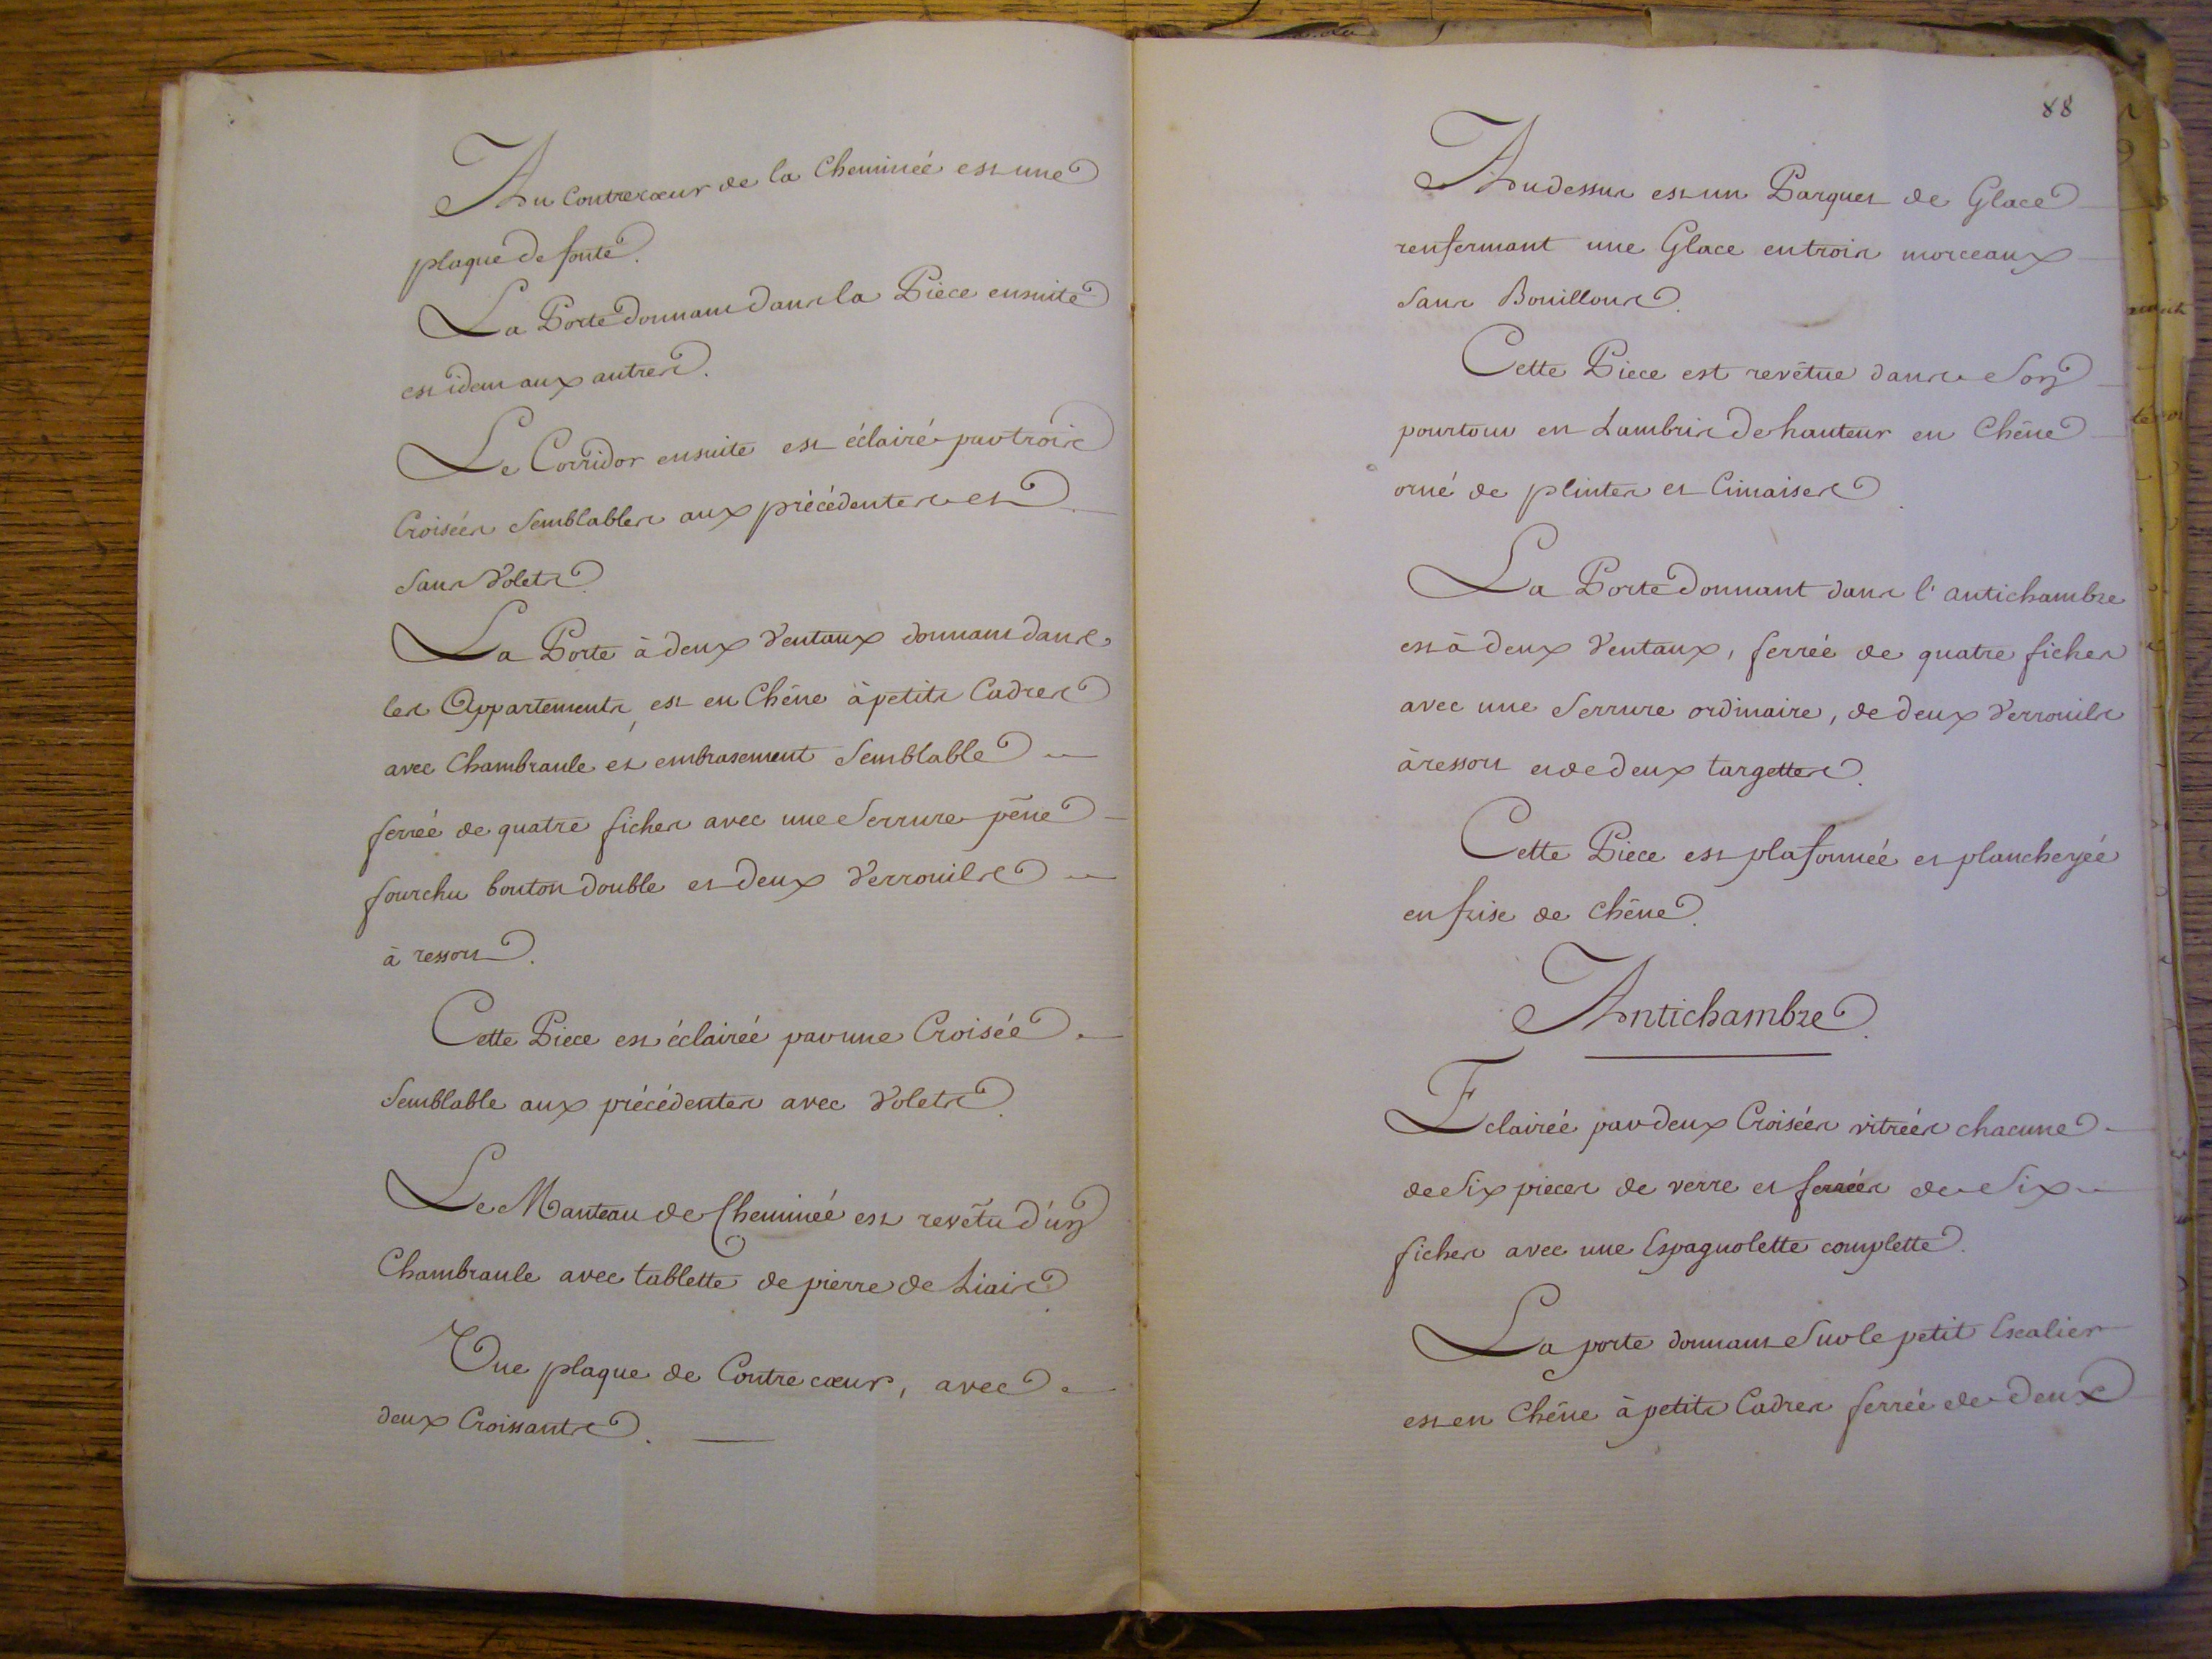 Au Contrecœur de la Cheminée est une
plaque de fonte.
La Porte donnant dans la Piece ensuite
est idem aux autres.
Le Corridor ensuite est éclairé par trois
Croisées Semblables aux précédentes et
Sans Volets.
La Porte à deux Ventaux donnant dans
les Appartements, est en Chêne à petits Cadres
avec Chambranle et embrasement Semblable
ferrée de quatre fiches avec une Serrure pêne
fourchu bouton double et deux Verrouils
à ressort.
Cette Piece est éclairée par une Croisée
Semblable aux précédentes avec Volets.
Le Manteau de Cheminée est revêtu d'un
Chambranle avec tablette de pierre de Liais.
Une plaque de Contre cœur, avec
deux Croissants.
88
Audessus est un Parquet de Glace
renfermant une Glace en trois morceaux
Sans Bouillons.
Cette Piece est revêtue dans Son
pourtour en Lambris de hauteur en Chêne
orné de plintes et Cimaises.
La Porte donnant dans l'antichambre
est à deux Ventaux, ferrée de quatre fiches
avec une Serrure ordinaire, de deux Verrouils
à ressort et de deux targettes.
Cette Piece est plafonnée et plancheyée
en frise de chêne.
Antichambre.
Eclairée par deux Croisées vitrées chacune
de Six pieces de verre et ferrées de Six
fiches avec une Espagnolette complette.
La porte donnant Sur le petit Escalier
est en Chêne à petits Cadres ferrée de deux